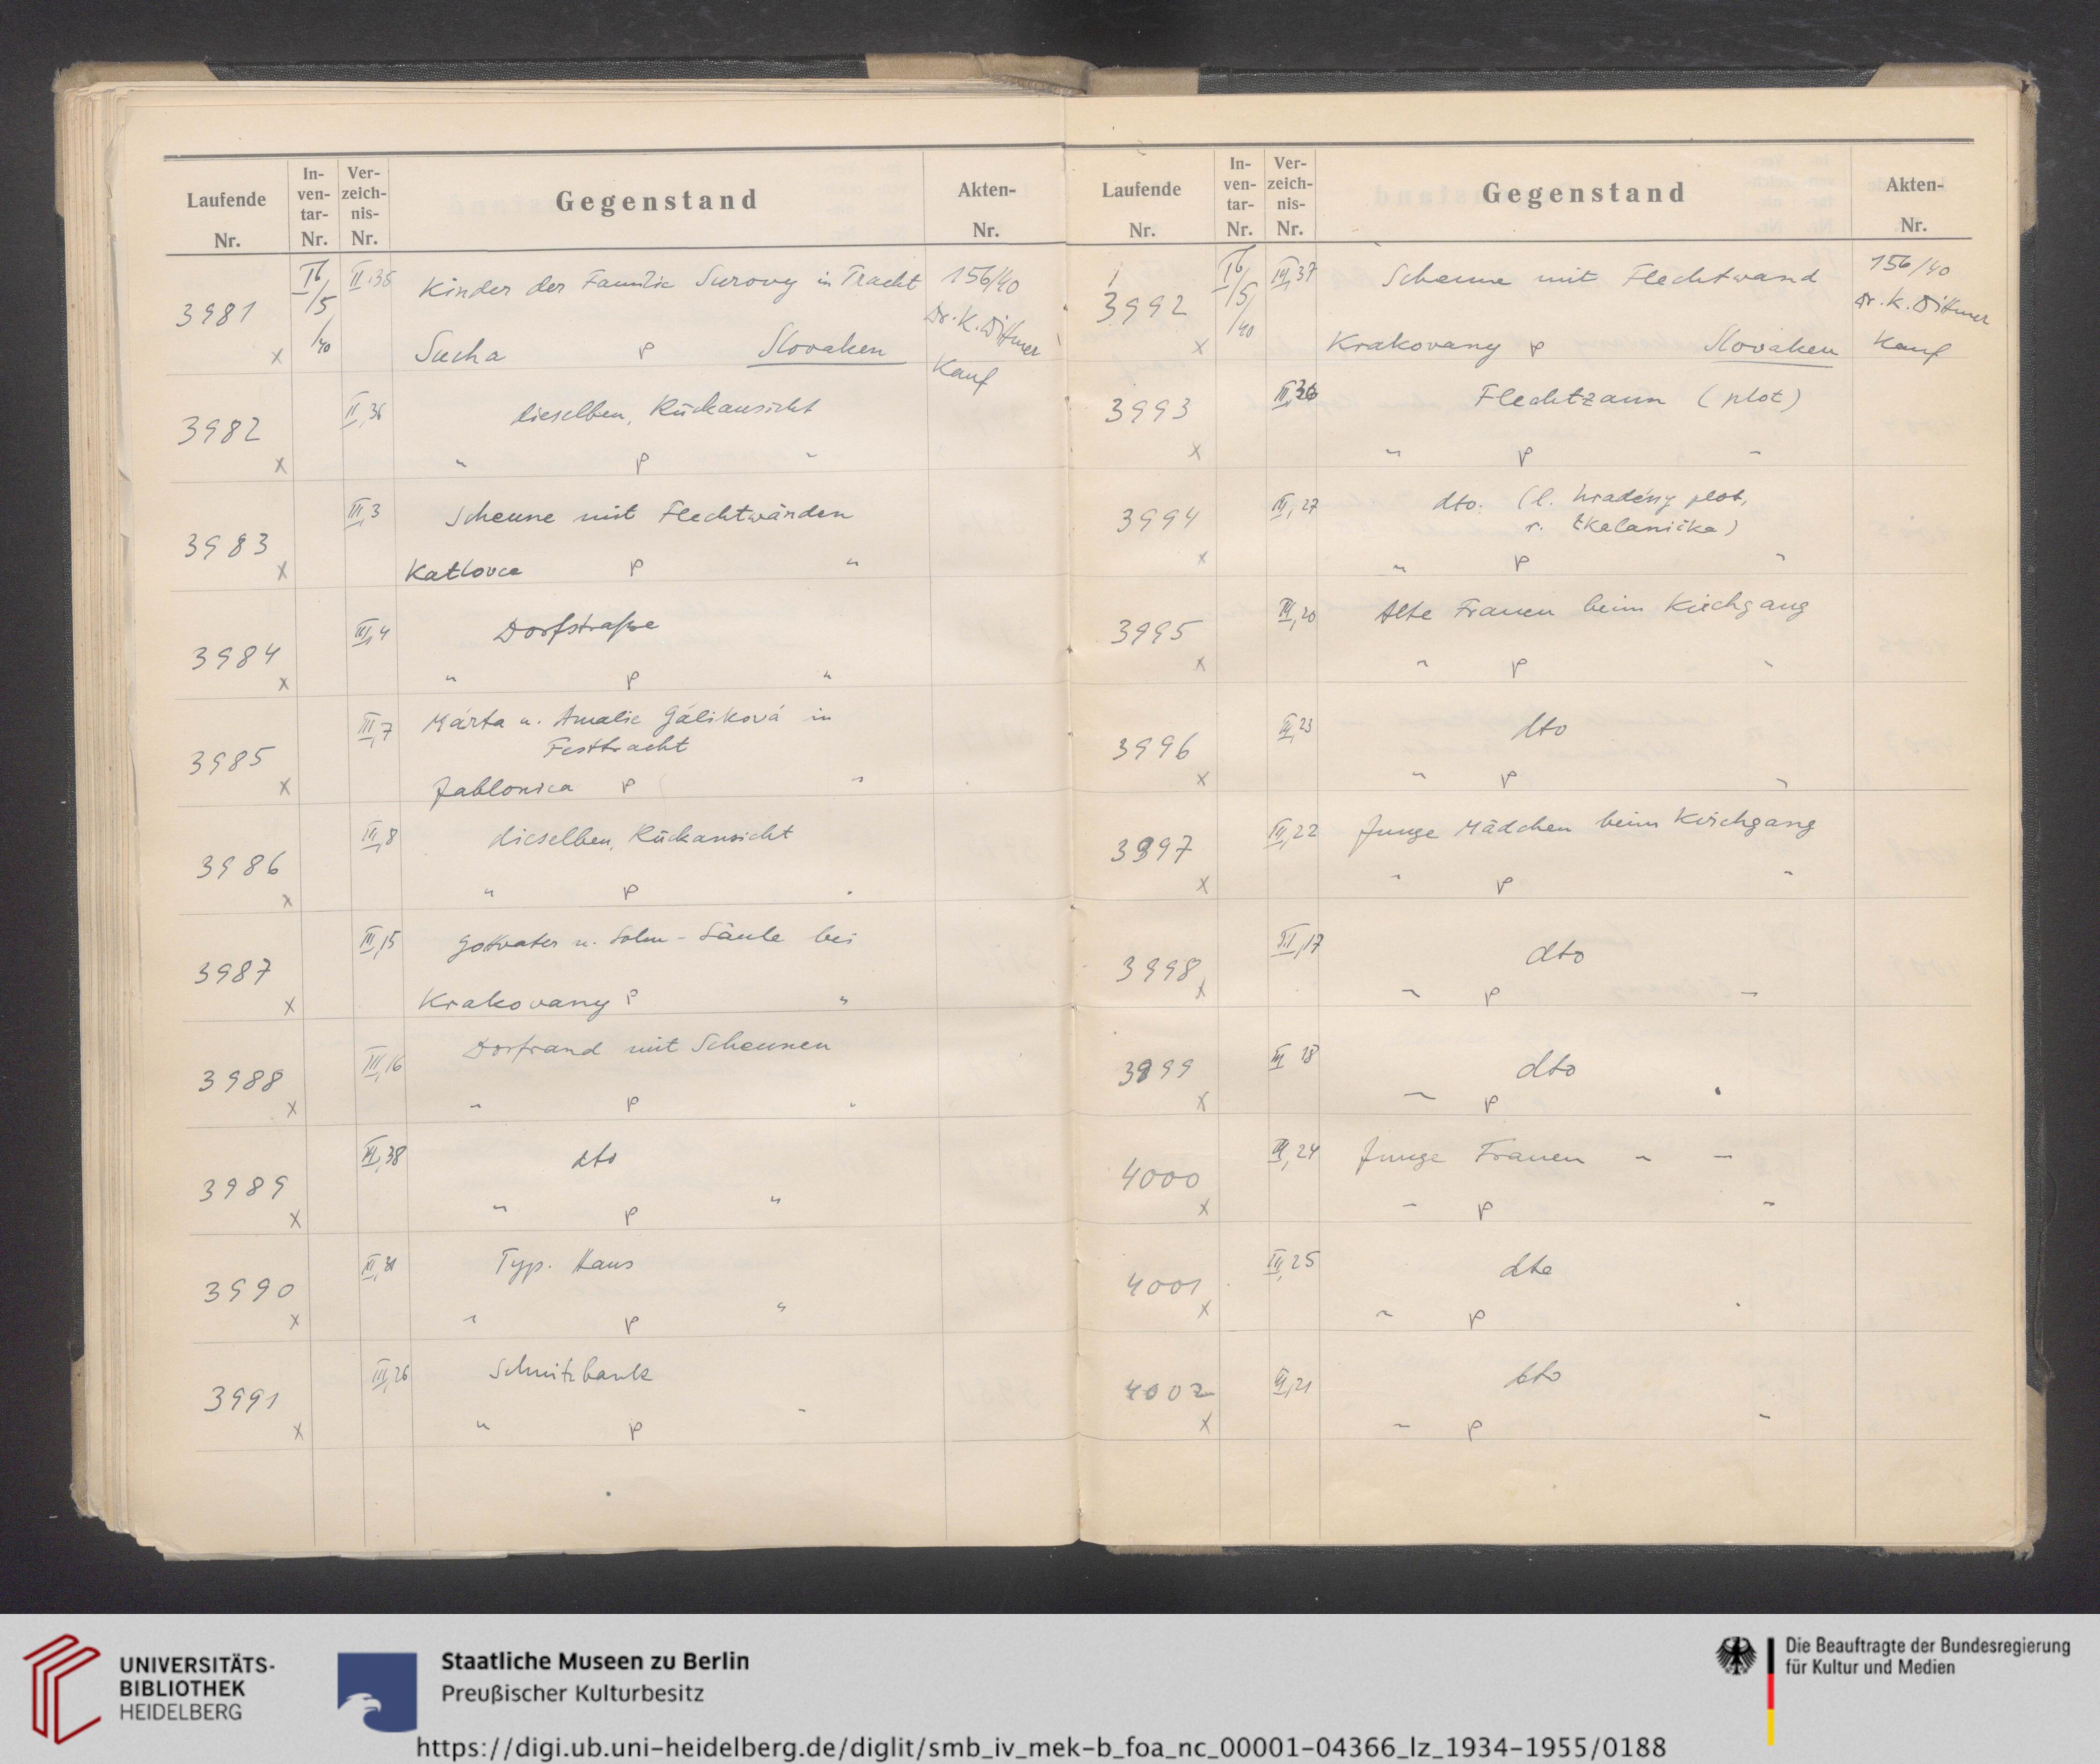 Laufende Nr. In-ven-tar-Nr. Ver-zeich-nis-Nr. Gegenstand Akten-Nr.
3981 x Ib/5/40 II,35 Kinder der Familie Surovy in Tracht 156/40
Dr. K. Dittmer
Sucha P Slovaken Kauf
3982 x II,36 dieselben, Rückansicht
" P "
3983 x III,3 Scheune mit Flechtwänden
Katlovce P "
3984 x III,4 Dorfstraße
" P "
3985 x III,7 Márta u. Amalie Gáliková in
Festtracht
Jablonica P "
3986 x III,8 dieselben, Rückansicht
" P "
3987 x III,15 Gottvater u. Sohn-Säule bei
Krakovany P "
3988 x III,16 Dorfrand mit Scheunen
" P "
3989 x III,38 dto
" P "
3990 x Typ. Haus
" P "
3991 x III,26 Schnitzbank
" P "
Laufende Nr. In-ven-tar-Nr. Ver-zeich-nis-Nr. Gegenstand Akten-Nr.
3992 x Ib/5/40 III,37 Scheune mit Flechtwand 156/40
Dr. K. Dittmer
Krakovany P Slovaken Kauf
3993 x Flechtzaun (plot)
" P "
3994 x III,27 dto. (l. hradény plot,
r. tkalanička)
" P "
3995 x III,20 Alte Frauen beim Kirchgang
" P "
3996 x III,23 dto
" P "
3997 x III,22 Junge Mädchen beim Kirchgang
" P "
3998 x III,17 dto
" P "
3999 x III 18 dto
" P "
4000 x III,24 Junge Frauen " "
" P "
4001 x III,25 dto
" P "
4002 x III,21 dto
" P "
UNIVERSITÄTS-
BIBLIOTHEK
HEIDELBERG
Staatliche Museen zu Berlin
Preußischer Kulturbesitz
Die Beauftragte der Bundesregierung
für Kultur und Medien
https://digi.ub.uni-heidelberg.de/diglit/smb_iv_mek-b_foa_nc_00001-04366_lz_1934-1955/0188